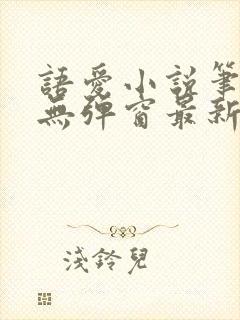 語愛小說筆
無彈窗最新
淺鈴兒